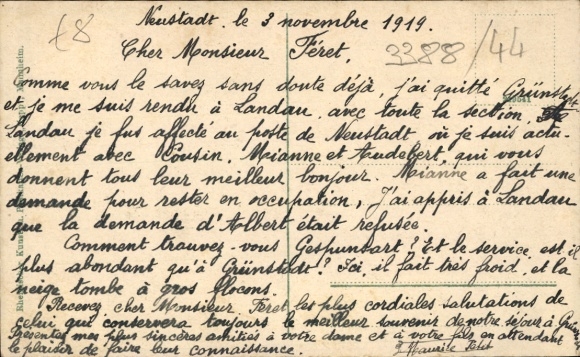 Neustadt. le 3 novembre 1919.
£8
Cher Monsieur Féret,
3388/44
Comme vous le savez sans doute déjà, j'ai quitté Grünstadt
et je me suis rendu à Landau avec toute la section. De
Landau je fus affecté au poste de Neustadt où je suis actu-
ellement avec Cousin, Mianne et Audebert, qui vous
donnent tous leur meilleur bonjour. Mianne a fait une
demande pour rester en occupation, J'ai appris à Landau
que la demande d'Albert était refusée.
Comment trouvez-vous Gespunsart? Et le service est-il
plus abondant qu'à Grünstadt? Ici, il fait très froid, et la
neige tombe à gros flocons.
Recevez cher Monsieur Féret, les plus cordiales salutations de
celui qui conservera toujours le meilleur souvenir de notre séjour à
Présentez mes plus sincères amitiés à votre dame et à votre fils en attendant
le plaisir de faire leur connaissance.
Maurice Petit